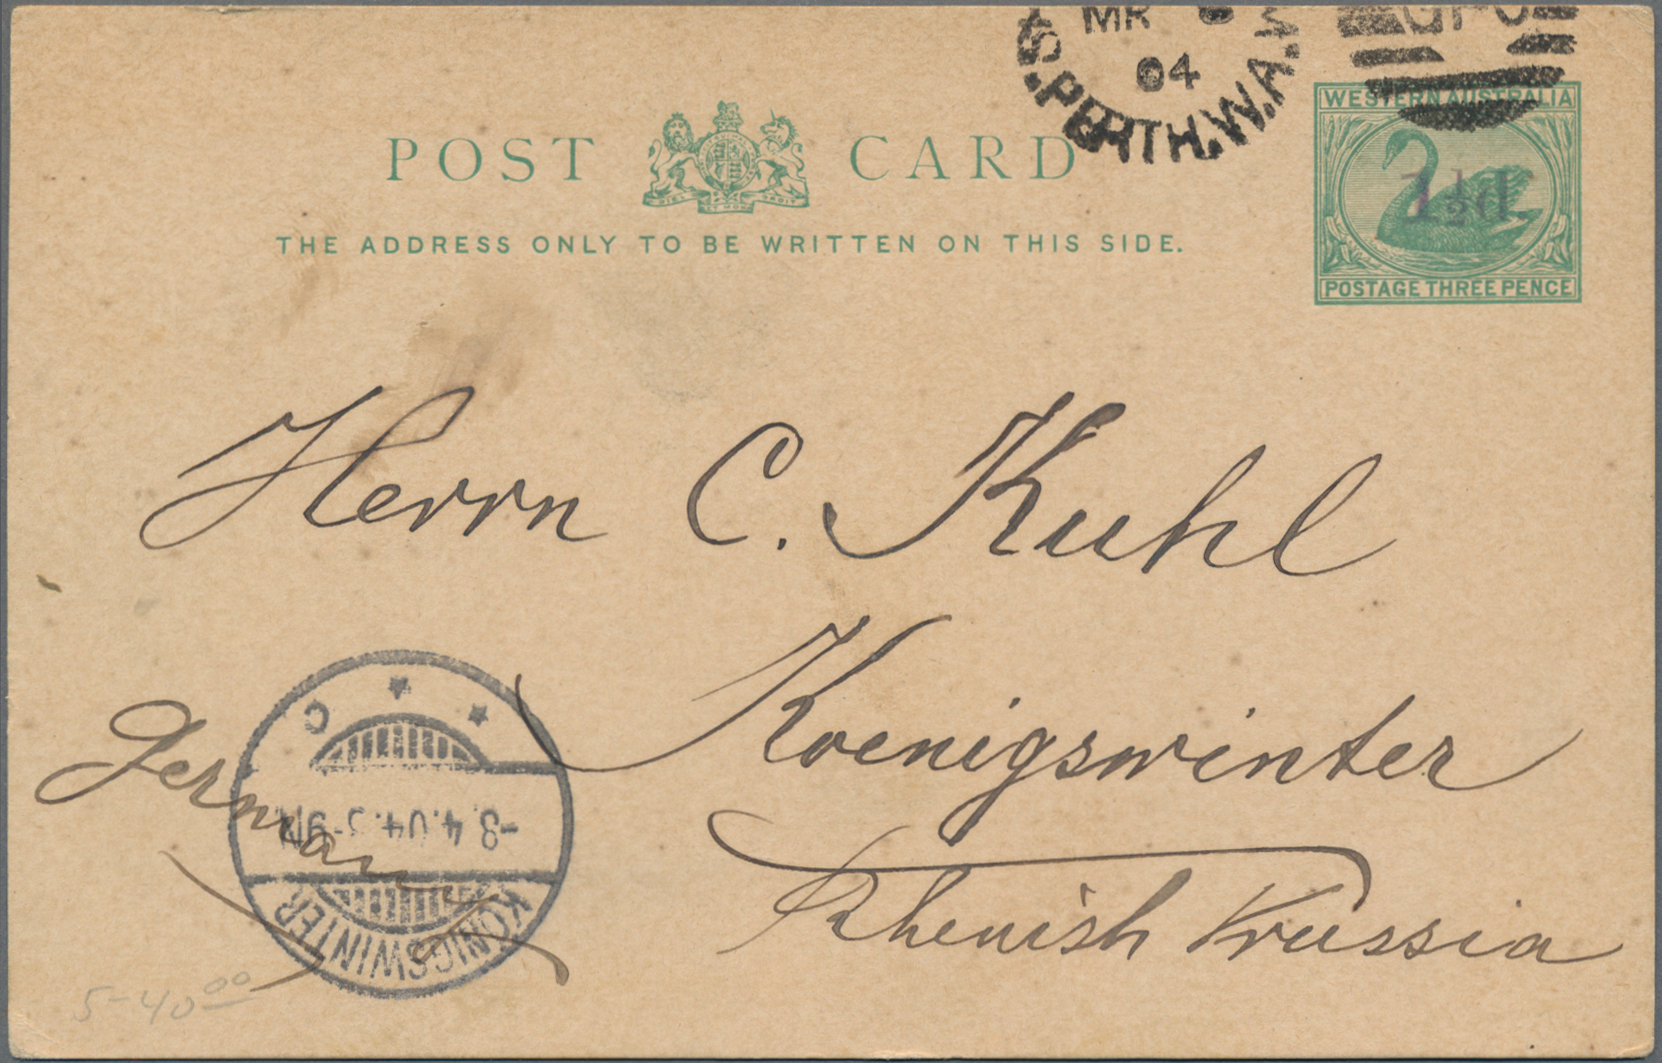 MR
04
S. PERTH. W.A.
GPO
POST CARD
THE ADDRESS ONLY TO BE WRITTEN ON THIS SIDE.
WESTERN AUSTRALIA
1½d
POSTAGE THREE PENCE
Herrn C. Kuhl
Koenigswinter
Rhenish Prussia
Germany
C
-3.4.04.
KÖNIGSWINTER
5-40 00